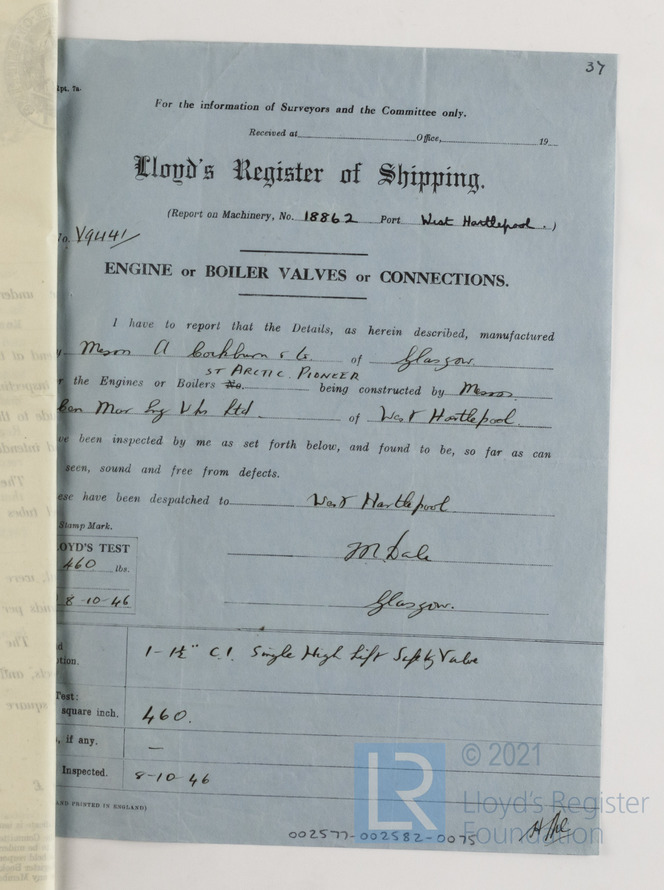 37
Rpt. 7a.
For the information of Surveyors and the Committee only.
Received at Office, 19
Lloyd's Register of Shipping.
(Report on Machinery, No. 18862 Port West Hartlepool.)
No. V9441
ENGINE or BOILER VALVES or CONNECTIONS.
I have to report that the Details, as herein described, manufactured
Messrs A Cockburn & Co. of Glasgow.
ST ARCTIC PIONEER
r the Engines or Boilers No. being constructed by Messrs.
Cen Mar Eng Wks Ltd of West Hartlepool.
ve been inspected by me as set forth below, and found to be, so far as can
seen, sound and free from defects.
ese have been despatched to West Hartlepool
Stamp Mark.
OYD'S TEST
460 lbs.
8-10-46
M. Dale
Glasgow.
tion.
1 - 1½" C.I. Single High Lift Safety Valve
Test:
square inch. 460.
, if any. —
Inspected. 8-10-46
AND PRINTED IN ENGLAND)
002577-002582-0075
LR
© 2021
Lloyd's Register
Foundation